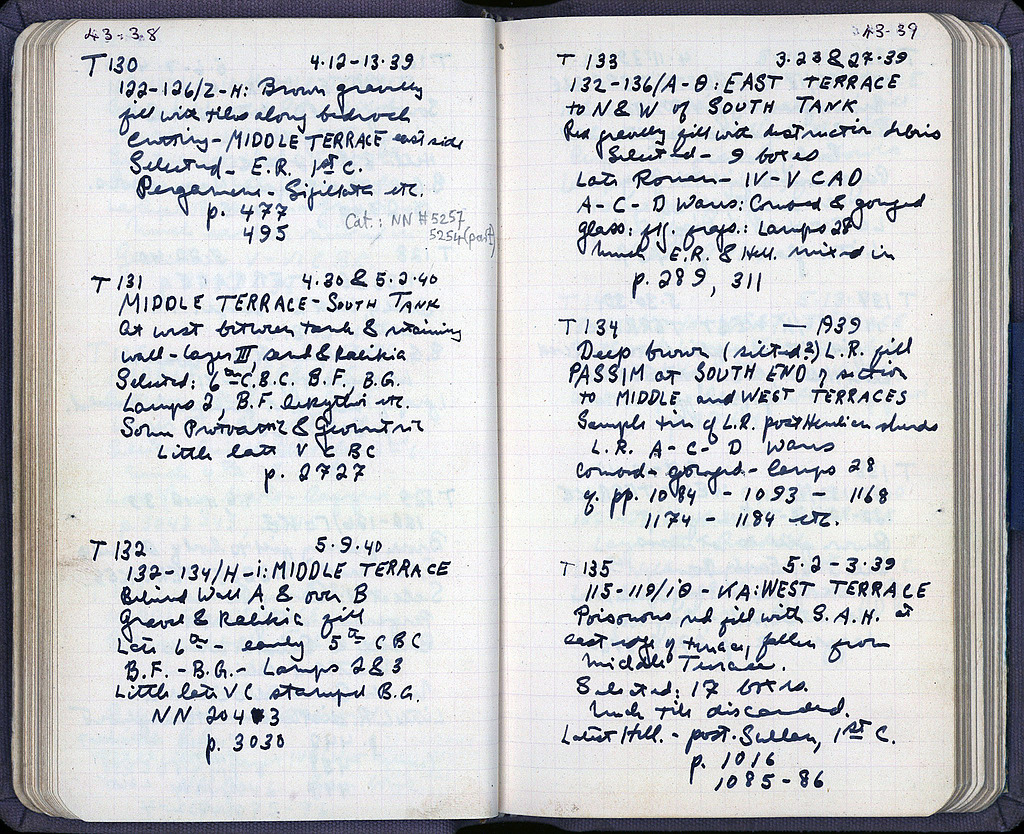 43-38
T 130 4.12-13.39
122-126/Z-H: Brown gravelly
fill with tiles along bedrock
cutting - MIDDLE TERRACE east side
Selected - E.R. 1st C.
Pergamene - Sigillata etc.
p. 477
495
Cat.: NN #5257
5254 (part)
T 131 4.30 & 5.2.40
MIDDLE TERRACE - SOUTH TANK
At west between tank & retaining
wall - layer III, sand & kalikia
Selected: 6th C.B.C. B.F., B.G.
Lamps 2, B.F. lekythoi etc.
Some Protoattic & Geometric
Little late V C BC
p. 2727
T 132 5.9.40
132-134/H-i: MIDDLE TERRACE
Behind Wall A & over B
Gravel & Kalikia fill
Late 6th - early 5th C BC
B.F. - B.G. - Lamps 2 & 3
Little late V C stamped B.G.
NN 2043
p. 3030
43-39
T 133 3.23 & 27.39
132-136/A-Θ: EAST TERRACE
to N & W of SOUTH TANK
Red gravelly fill with destruction debris
Selected - 9 boxes
Late Roman - IV-V C AD
A-C-D Wares: Combed & gouged
glass: frags.: Lamps 28
Much E.R. & Hell. mixed in
p. 289, 311
T 134 — 1939
Deep brown (silted?) L.R. fill
PASSIM at SOUTH END of section
to MIDDLE and WEST TERRACES
Sample tin of L.R. post Herulian sherds
L.R. A-C-D Wares
Combed - gouged - lamps 28
cf. pp. 1084 - 1093 - 1168
1174 - 1184 etc.
T 135 5.2-3.39
115-119/ΙΘ-ΚΑ: WEST TERRACE
Poisonous red fill with S.A.H. at
east edge of terrace, fallen from
Middle Terrace.
Selected: 17 boxes.
Much tile discarded.
Latest Hell. - post-Sullan, 1st C.
p. 1016
1085-86